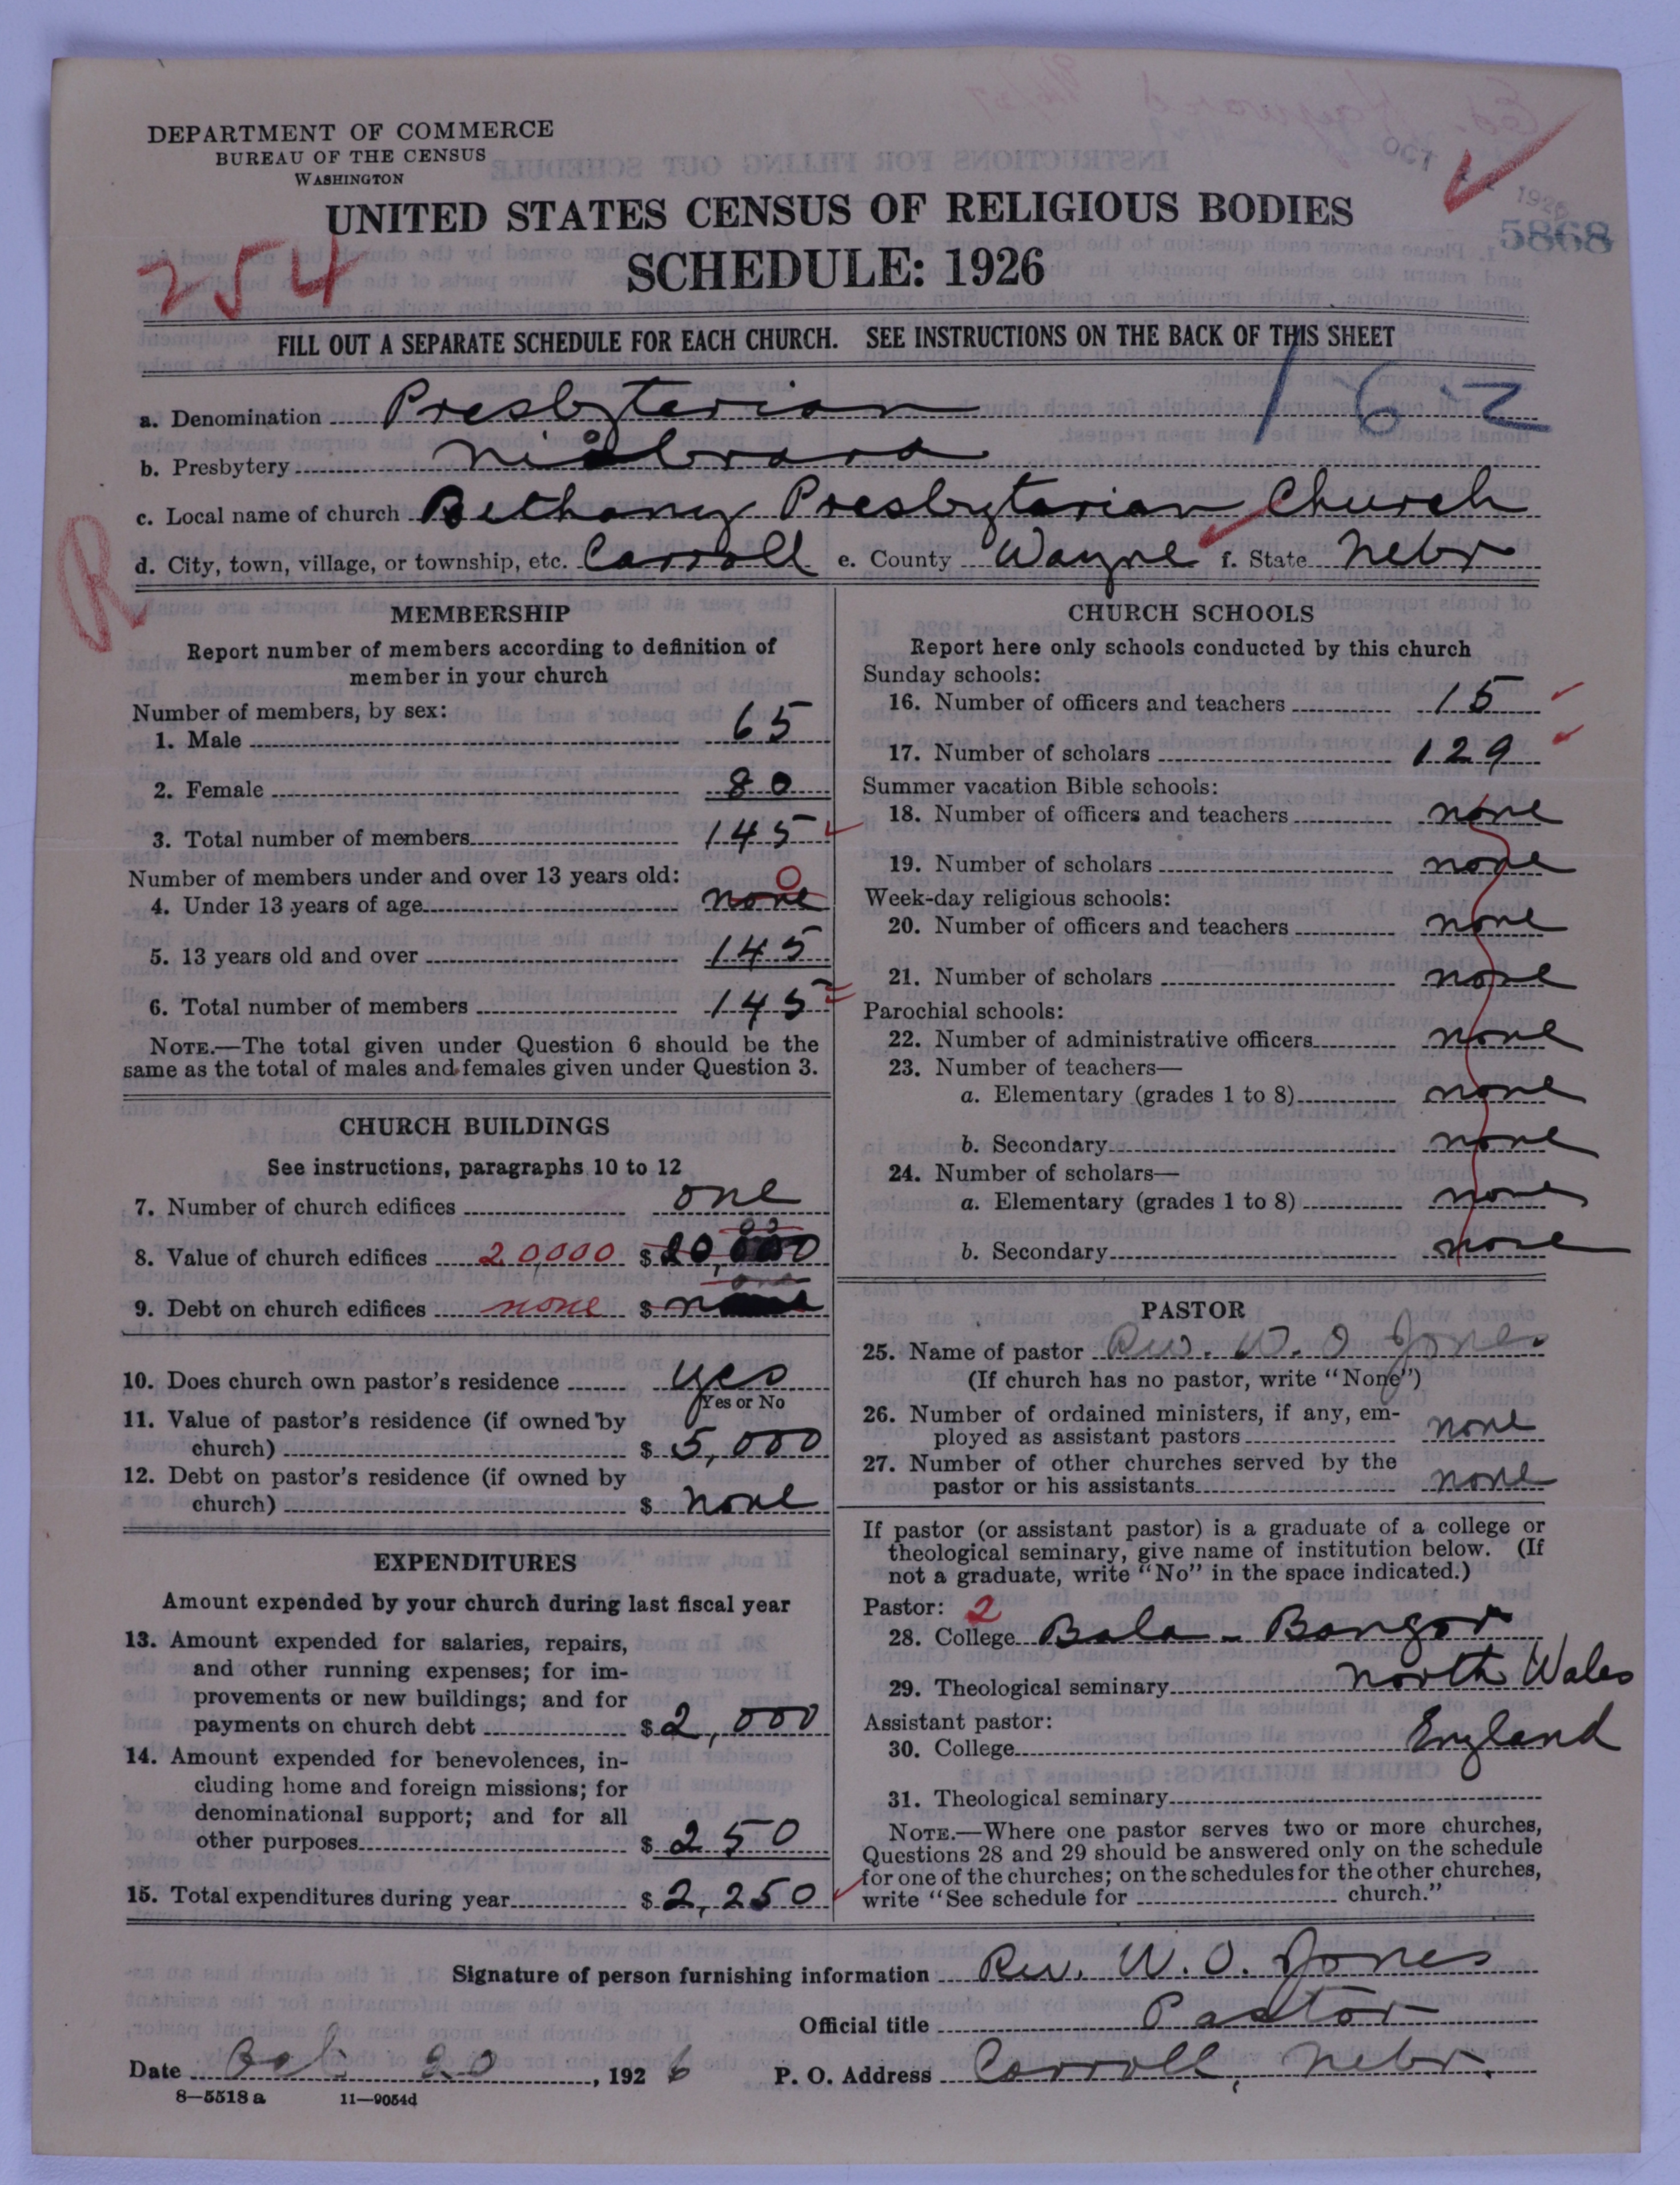 DEPARTMENT OF COMMERCE
BUREAU OF THE CENSUS
WASHINGTON
OCT 1926
5868
UNITED STATES CENSUS OF RELIGIOUS BODIES
254
SCHEDULE: 1926
FILL OUT A SEPARATE SCHEDULE FOR EACH CHURCH. SEE INSTRUCTIONS ON THE BACK OF THIS SHEET
162
a. Denomination Presbyterian
b. Presbytery Niobrara
c. Local name of church Bethany Presbytarian Church
R
d. City, town, village, or township, etc. Carroll e. County Wayne f. State Nebr
MEMBERSHIP
Report number of members according to definition of
member in your church
Number of members, by sex:
1. Male 65
2. Female 80
3. Total number of members 145
Number of members under and over 13 years old:
4. Under 13 years of age none 0
5. 13 years old and over 145
6. Total number of members 145
NOTE.—The total given under Question 6 should be the
same as the total of males and females given under Question 3.
CHURCH BUILDINGS
See instructions, paragraphs 10 to 12
7. Number of church edifices one
8. Value of church edifices 20,000 $ 20,000
9. Debt on church edifices none $
10. Does church own pastor's residence yes
Yes or No
11. Value of pastor's residence (if owned by
church) $ 5,000
12. Debt on pastor's residence (if owned by
church) $ none
EXPENDITURES
Amount expended by your church during last fiscal year
13. Amount expended for salaries, repairs,
and other running expenses; for im-
provements or new buildings; and for
payments on church debt $ 2,000
14. Amount expended for benevolences, in-
cluding home and foreign missions; for
denominational support; and for all
other purposes $ 250
15. Total expenditures during year $ 2,250
CHURCH SCHOOLS
Report here only schools conducted by this church
Sunday schools:
16. Number of officers and teachers 15
17. Number of scholars 129
Summer vacation Bible schools:
18. Number of officers and teachers none
19. Number of scholars none
Week-day religious schools:
20. Number of officers and teachers none
21. Number of scholars none
Parochial schools:
22. Number of administrative officers none
23. Number of teachers—
a. Elementary (grades 1 to 8) none
b. Secondary none
24. Number of scholars—
a. Elementary (grades 1 to 8) none
b. Secondary none
PASTOR
25. Name of pastor Rev. W. O Jones
(If church has no pastor, write "None")
26. Number of ordained ministers, if any, em-
ployed as assistant pastors none
27. Number of other churches served by the
pastor or his assistants none
If pastor (or assistant pastor) is a graduate of a college or
theological seminary, give name of institution below. (If
not a graduate, write "No" in the space indicated.)
Pastor: 2
28. College Bala - Bangor
29. Theological seminary North Wales
Assistant pastor:
30. College England
31. Theological seminary
NOTE.—Where one pastor serves two or more churches,
Questions 28 and 29 should be answered only on the schedule
for one of the churches; on the schedules for the other churches,
write "See schedule for church."
Signature of person furnishing information Rev. W. O. Jones
Official title Pastor
Date 20, 1926 P. O. Address Carroll, Nebr.
8—5518 a 11—9054d